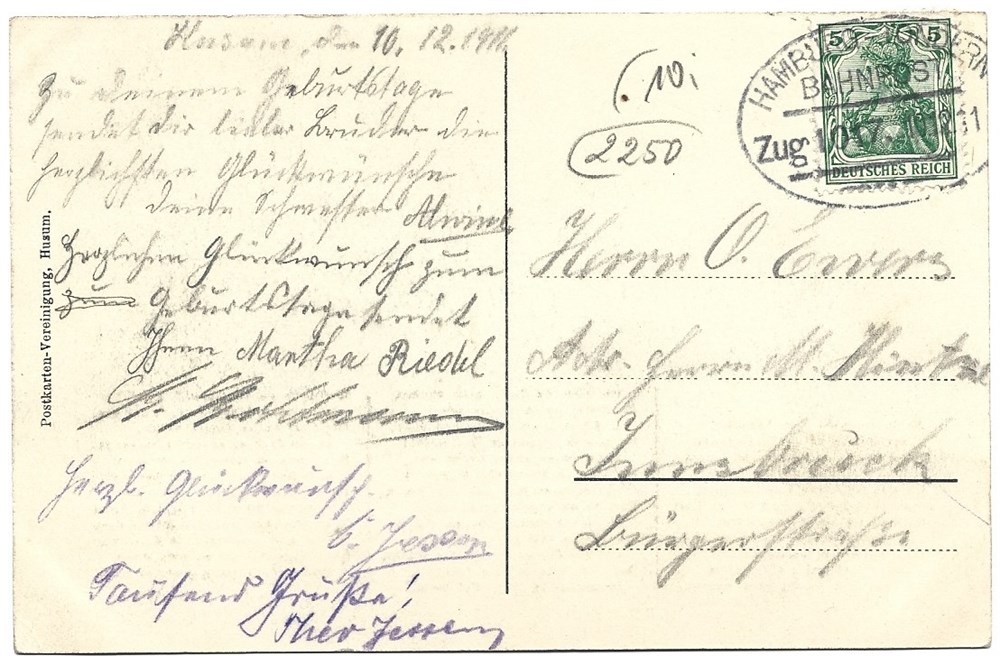 Husum, den 10. 12. 1911
Zu deinem Geburtstage
sendet dir lieber Bruder die
herzlichsten Glückwünsche
deine Schwester Alwine
Herzlichen Glückwunsch zum
zum Geburtstage sendet
Ihnen Martha Riedel
Herzl. Glückwunsch.
Jessen
Tausend Grüße!
Theo Jessen
Postkarten-Vereinigung, Husum.
10
2250
HAMBU
BAHNPOST
Zug
5 5
DEUTSCHES REICH
Herrn O. Ewers
Adr. Herrn M.
Innsbruck
Bürgerstraße